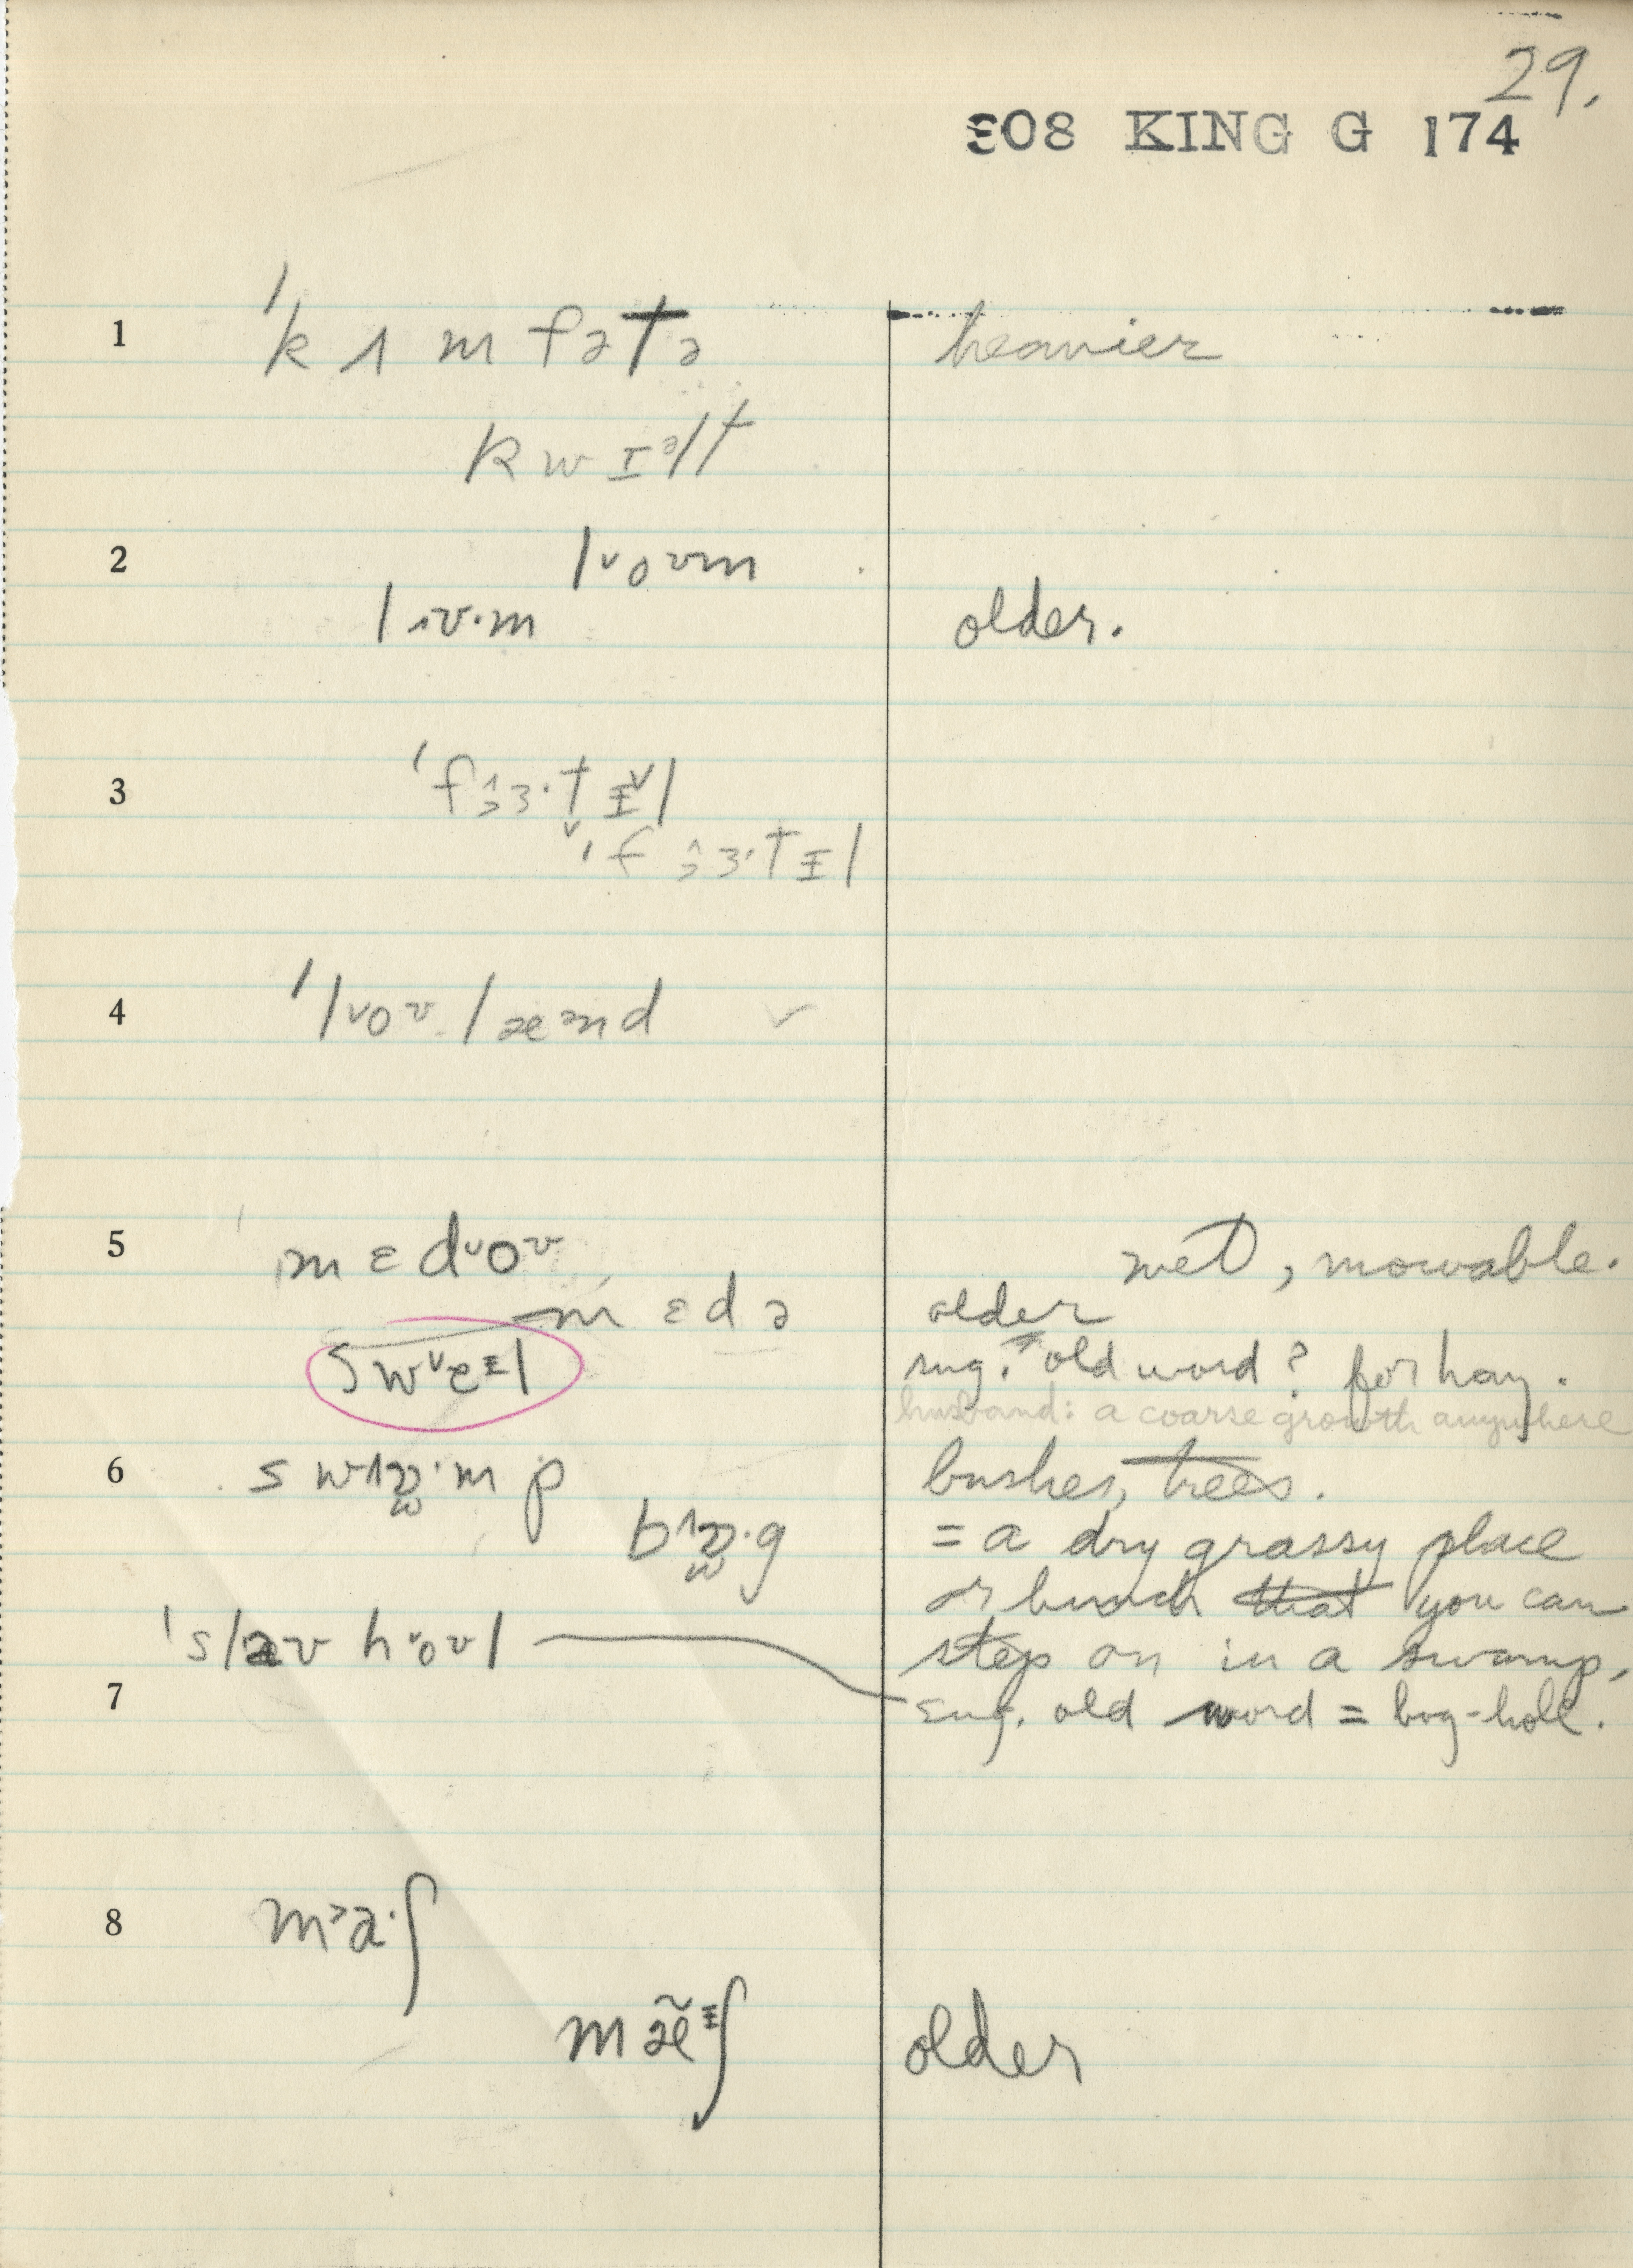 29.
308 KING G 174
1 ˈkʌmfətə heavier
kwɪᵊlt
2 lˇoʊm
lɪʊ·m older.
3 ˈfɜ·tɪˇl
ˈfɜ·tɪl
4 ˈlˇoʊ·læᵊnd ✓
5 mɛdˇoʊ wet, mowable.
mɛdə older
swˇeᴵl sug. old word? for hay.
husband: a coarse growth anywhere
6 swɒ·mp bushes, trees.
bɒ·g = a dry grassy place
or hunch that you can
ˈslaʊ hˇoʊl step on in a swamp,
7 sug. old word = bog-hole.
8 m˃a·ʃ
mæ̃ᴵʃ older